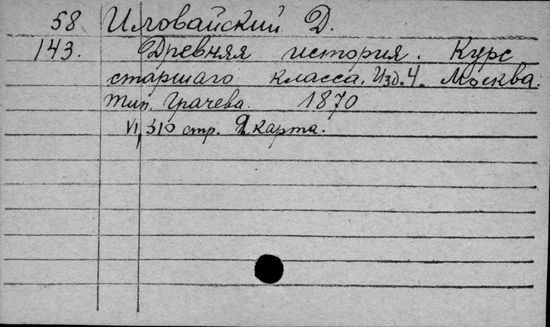 58 Иловайский Д.
143. Древняя история. Курс
старшаго класса. Изд. 4. Москва.
тип. Грачева. 1870
VI, 310 стр. карта.